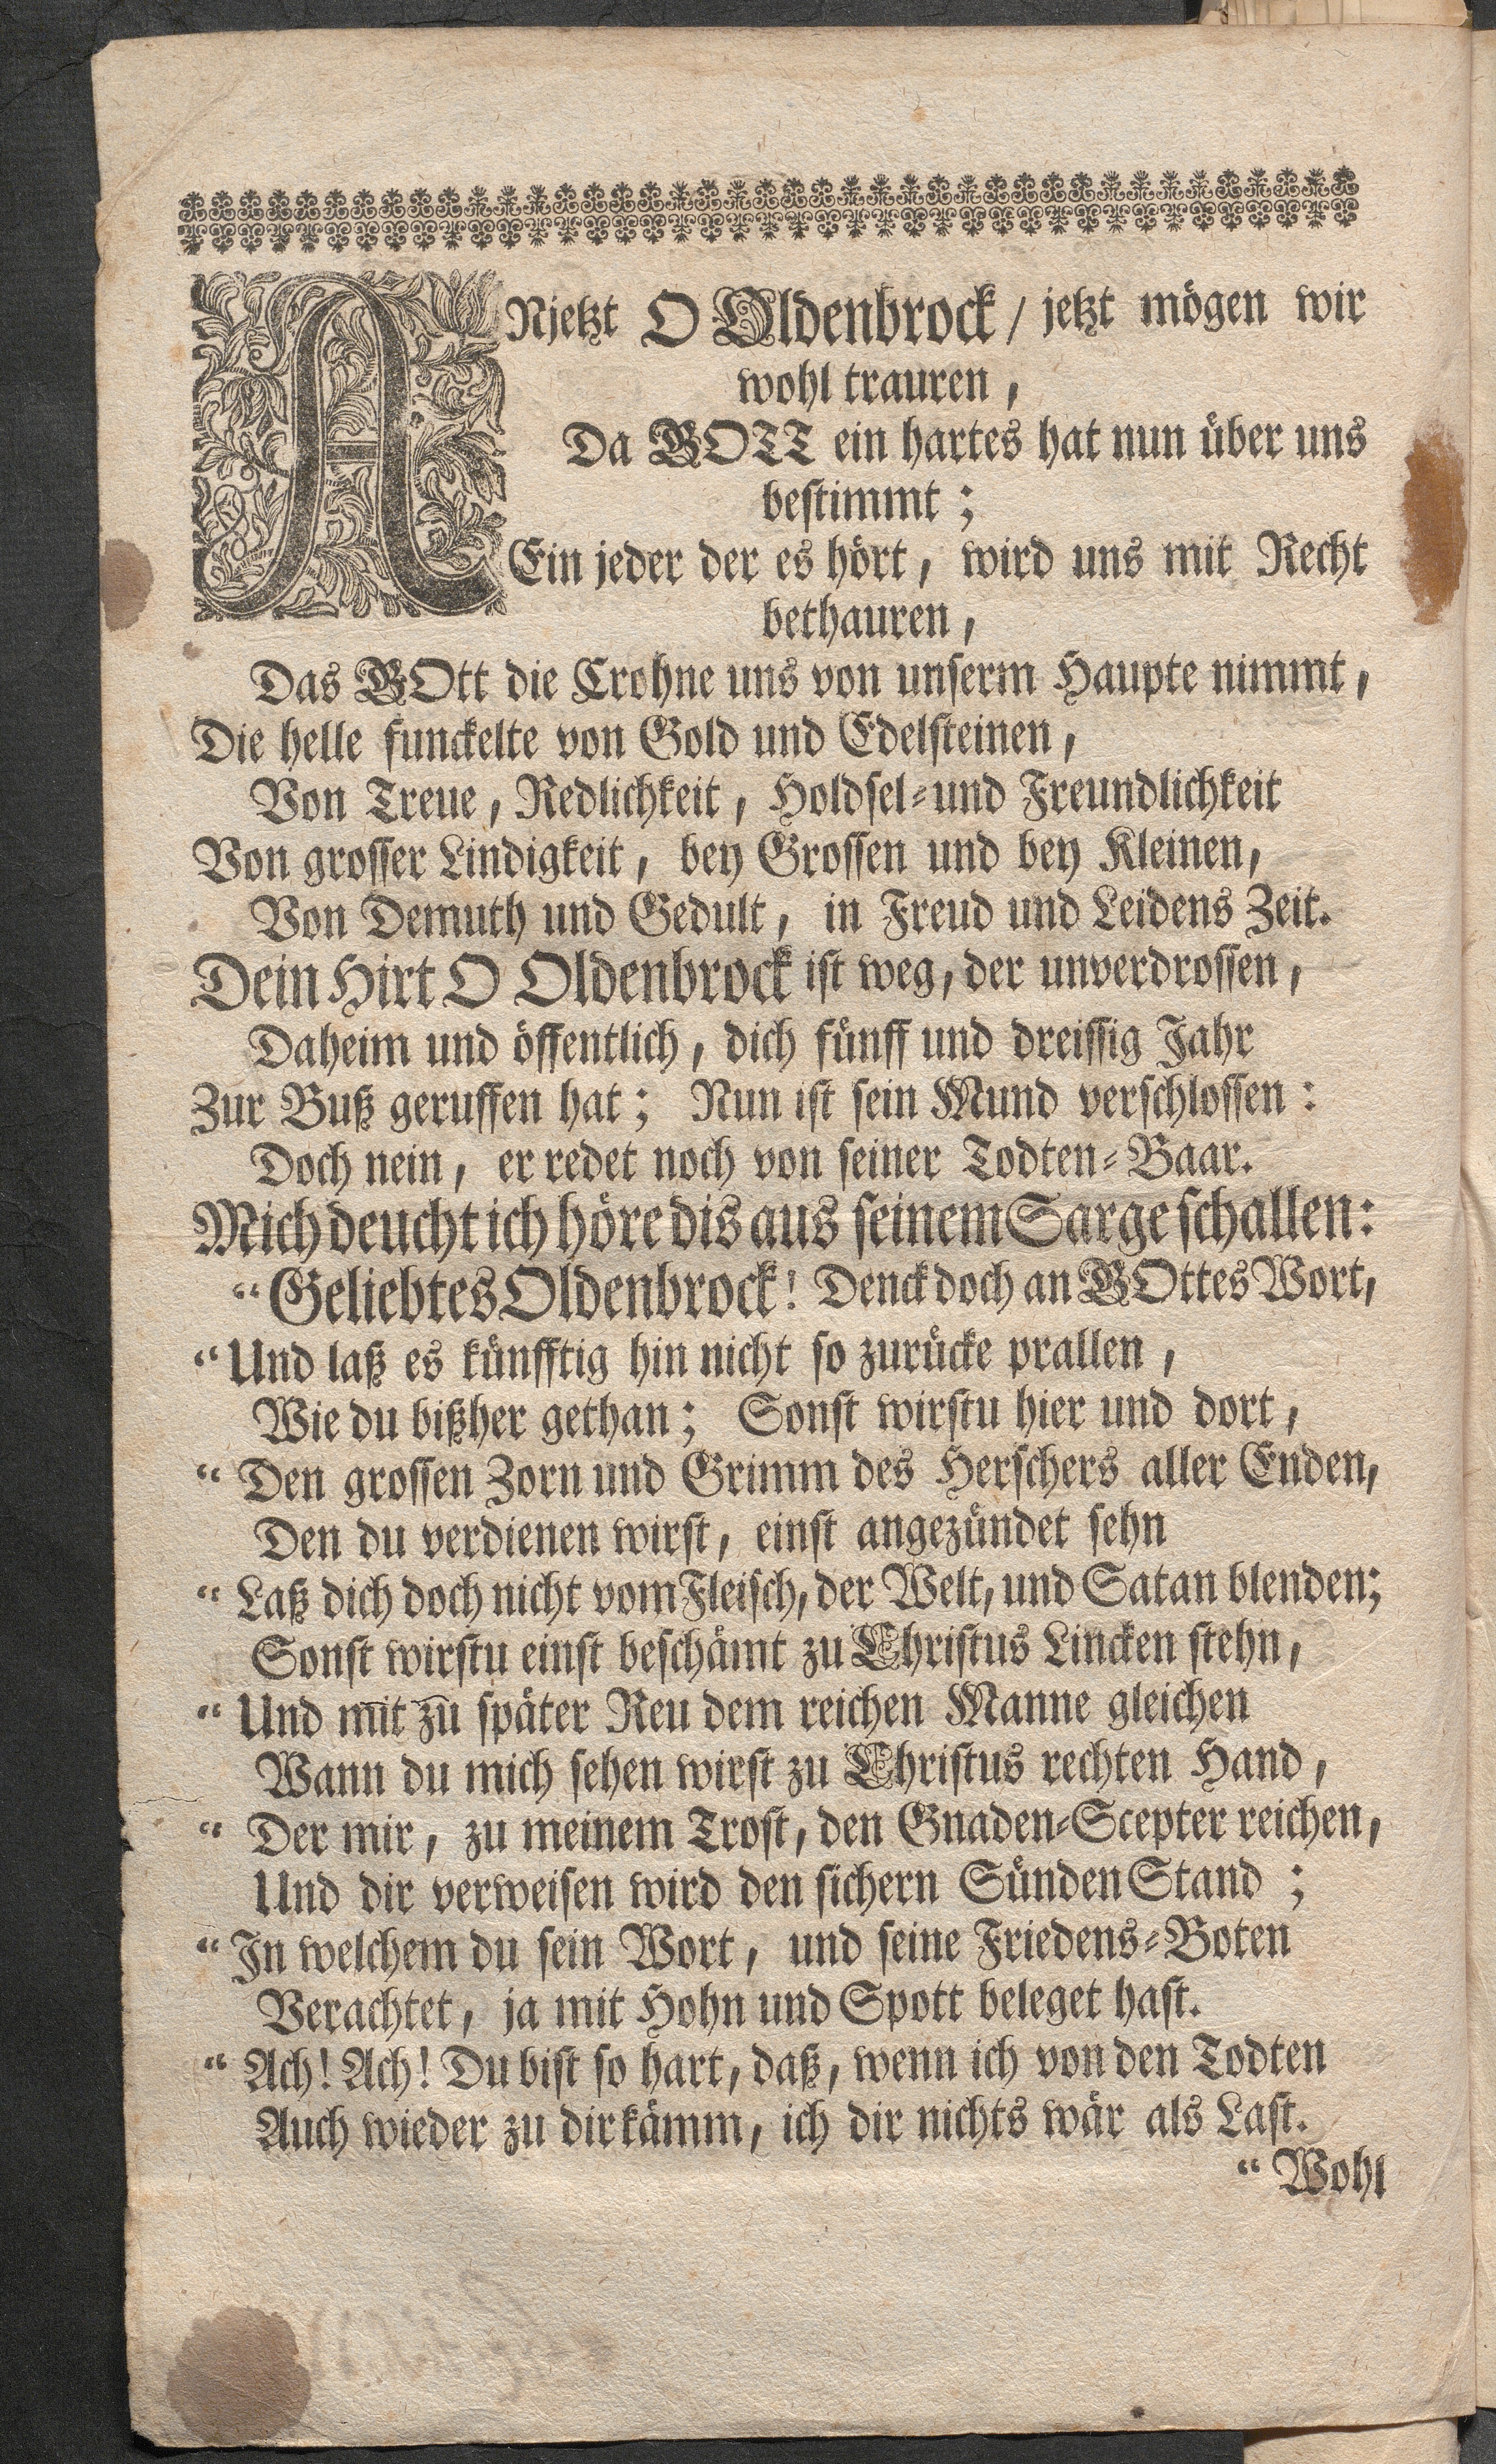 ANjetzt O Oldenbrock / jetzt mögen wir
wohl trauren,
Da GOTT ein hartes hat nun über uns
bestimmt;
Ein jeder der es hört, wird uns mit Recht
bethauren,
Das GOtt die Crohne uns von unserm Haupte nimmt,
Die helle funckelte von Gold und Edelsteinen,
Von Treue, Redlichkeit, Holdsel-und Freundlichkeit
Von grosser Lindigkeit, bey Grossen und bey Kleinen,
Von Demuth und Gedult, in Freud und Leidens Zeit.
Dein Hirt O Oldenbrock ist weg, der unverdrossen,
Daheim und öffentlich, dich fünff und dreissig Jahr
Zur Buß geruffen hat; Nun ist sein Mund verschlossen:
Doch nein, er redet noch von seiner Todten-Baar.
Mich deucht ich höre dis aus seinem Sarge schallen:
“Geliebtes Oldenbrock! Denck doch an GOttes Wort,
“Und laß es künfftig hin nicht so zurücke prallen,
Wie du bißher gethan; Sonst wirstu hier und dort,
“ Den grossen Zorn und Grimm des Herschers aller Enden,
Den du verdienen wirst, einst angezündet sehn
“ Laß dich doch nicht vom Fleisch, der Welt, und Satan blenden;
Sonst wirstu einst beschämt zu Christus Lincken stehn,
“ Und mit zu später Reu dem reichen Manne gleichen
Wann du mich sehen wirst zu Christus rechten Hand,
“ Der mir, zu meinem Trost, den Gnaden-Scepter reichen,
Und dir verweisen wird den sichern Sünden Stand;
“ In welchem du sein Wort, und seine Friedens-Boten
Verachtet, ja mit Hohn und Spott beleget hast.
“ Ach! Ach! Du bist so hart, daß, wenn ich von den Todten
Auch wieder zu dir kämm, ich dir nichts wär als Last.
“ Wohl